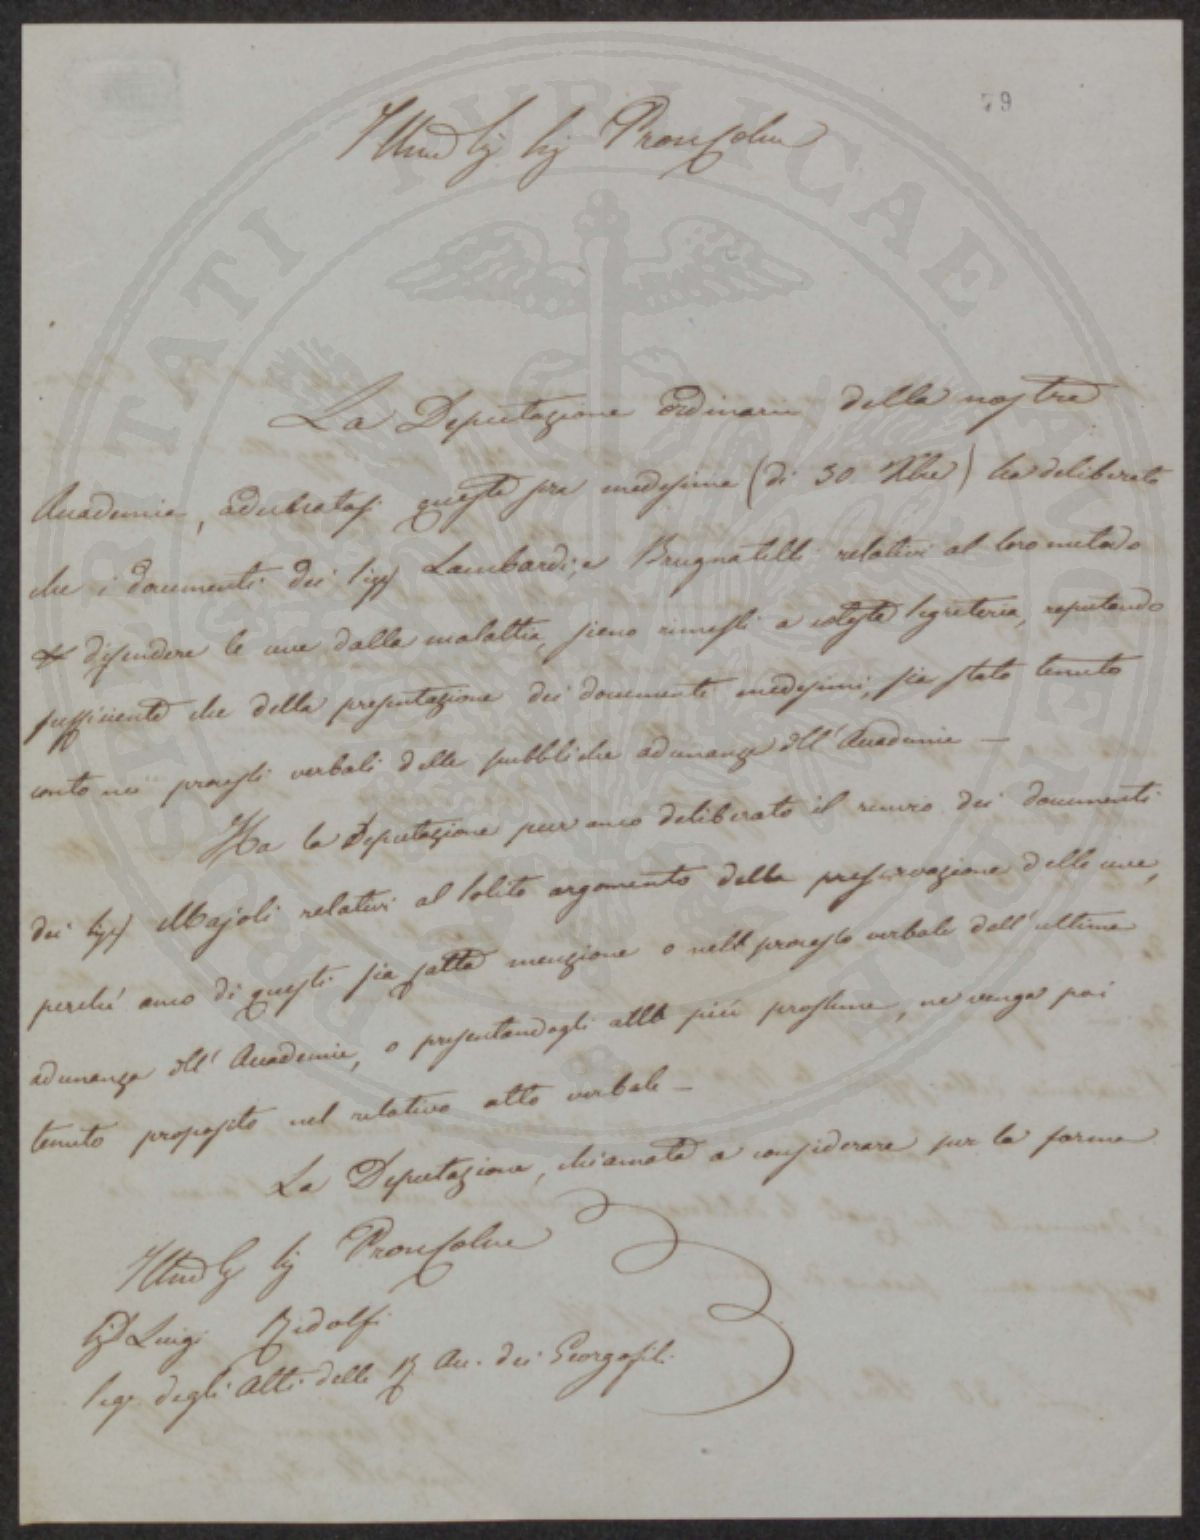 79
Illmo Sig Sig Pron Colmo
La Deputazione Ordinaria della nostra
Accademia, adunatasi questa sera medesima (di 30 Xbre) ha deliberato
che i documenti dei Sigg Lambardi, e Brugnatelli relativi al loro metodo
di difendere le uve dalla malattia, sieno rimessi a cotesta Segreteria, reputando
sufficiente che della presentazione dei documenti medesimi, sia stato tenuto
conto nei processi verbali delle pubbliche adunanze dell'Accademia —
Ha la Deputazione pur anco deliberato il rinvio dei documenti
dei Sigg Majoli relativi al solito argomento della preservazione delle uve,
perché anco di questi sia fatta menzione o nell processo verbale dell'ultima
adunanza dell'Accademia, o presentandogli alla più prossima, ne venga poi
tenuto proposito nel relativo atto verbale —
La Deputazione, chiamata a considerare per la forma
Illmo Sig Sig Pron Colmo
Sig Luigi Ridolfi
Seg. degli Atti della R Acc. dei Georgofili
PROSPERITATI PUBLICAE AUGENDAE